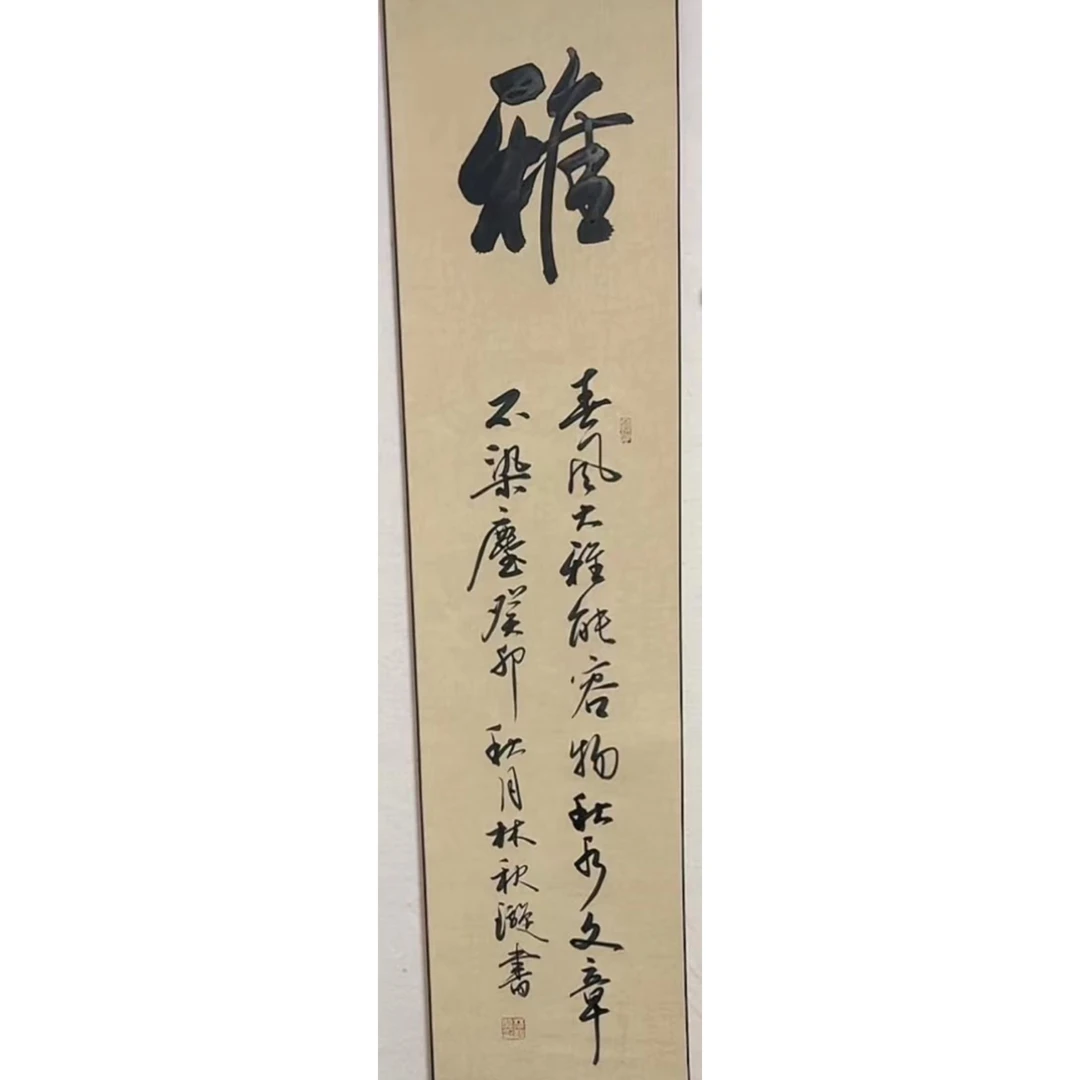 雅
春風大雅能容物秋水文章
不染塵癸卯秋月林秋璇書